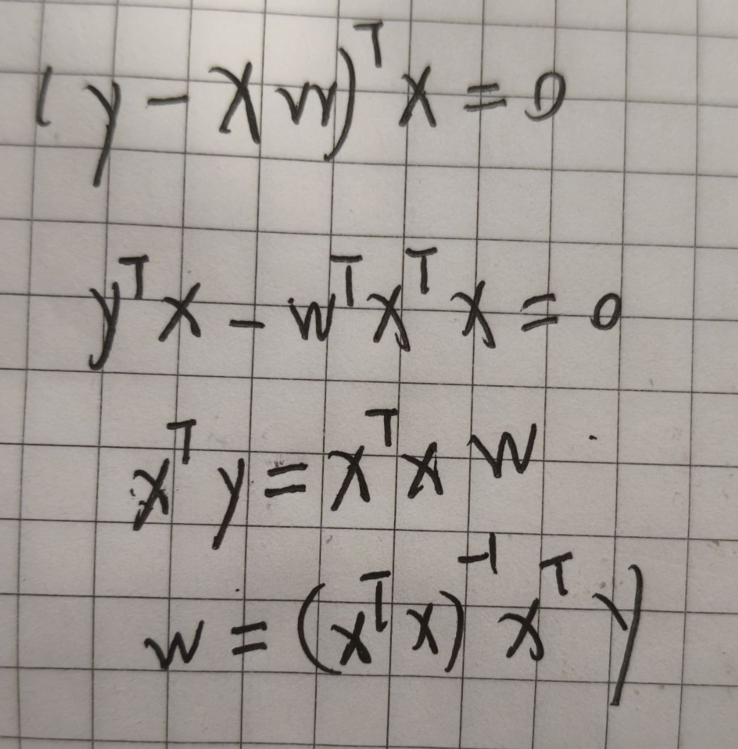 (y - Xw)ᵀ X = 0
yᵀX - wᵀXᵀX = 0
Xᵀy = XᵀXw
w = (XᵀX)⁻¹Xᵀy